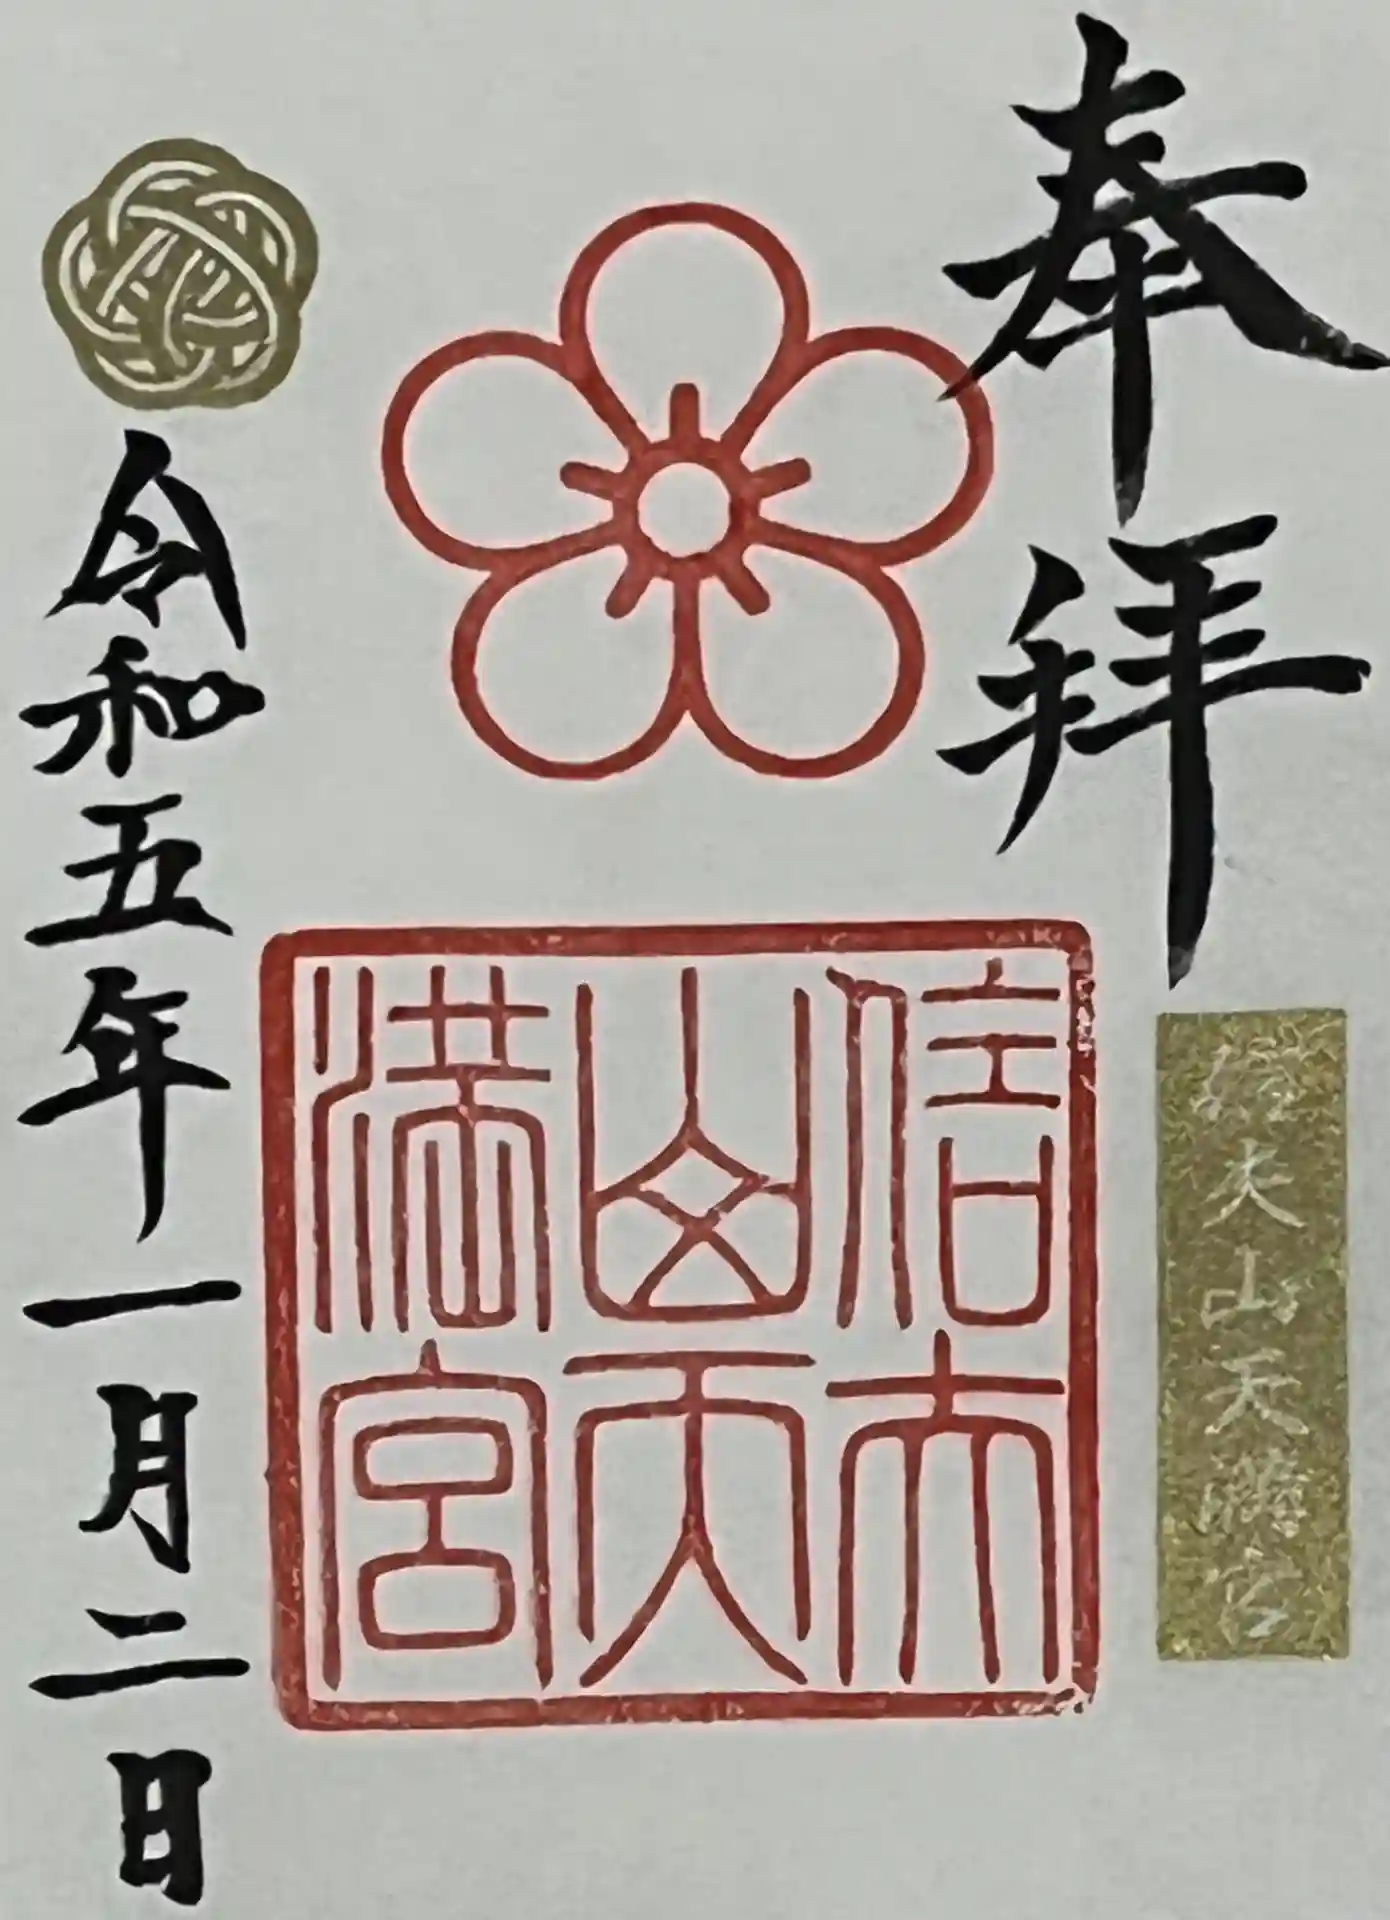 奉拝
信夫山天満宮
信夫
山天
満宮
令和五年一月二日